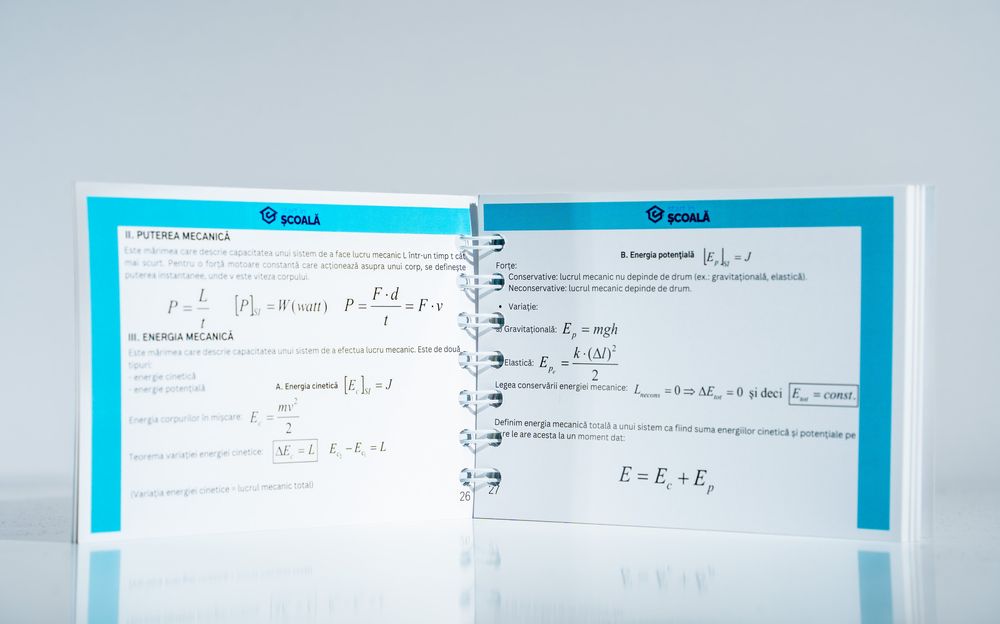 ȘCOALĂ
II. PUTEREA MECANICĂ
Este mărimea care descrie capacitatea unui sistem de a face lucru mecanic L într-un timp t cât
mai scurt. Pentru o forță motoare constantă care acționează asupra unui corp, se definește
puterea instantanee, unde v este viteza corpului.
P = L/t [P]SI = W(watt) P = F·d/t = F·v
III. ENERGIA MECANICĂ
Este mărimea care descrie capacitatea unui sistem de a efectua lucru mecanic. Este de două
tipuri:
- energie cinetică
- energie potențială
A. Energia cinetică [Ec]SI = J
Energia corpurilor în mișcare: Ec = mv²/2
Teorema variației energiei cinetice: ΔEc = L Ec2 − Ec1 = L
(Variația energiei cinetice = lucrul mecanic total)
26
ȘCOALĂ
B. Energia potențială [Ep]SI = J
Forțe:
Conservative: lucrul mecanic nu depinde de drum (ex.: gravitațională, elastică).
Neconservative: lucrul mecanic depinde de drum.
• Variație:
Gravitațională: Ep = mgh
Elastică: Epe = k·(Δl)²/2
Legea conservării energiei mecanice: Lnecons = 0 ⇒ ΔEtot = 0 și deci Etot = const.
Definim energia mecanică totală a unui sistem ca fiind suma energiilor cinetică și potențiale pe
le are acesta la un moment dat:
E = Ec + Ep
27